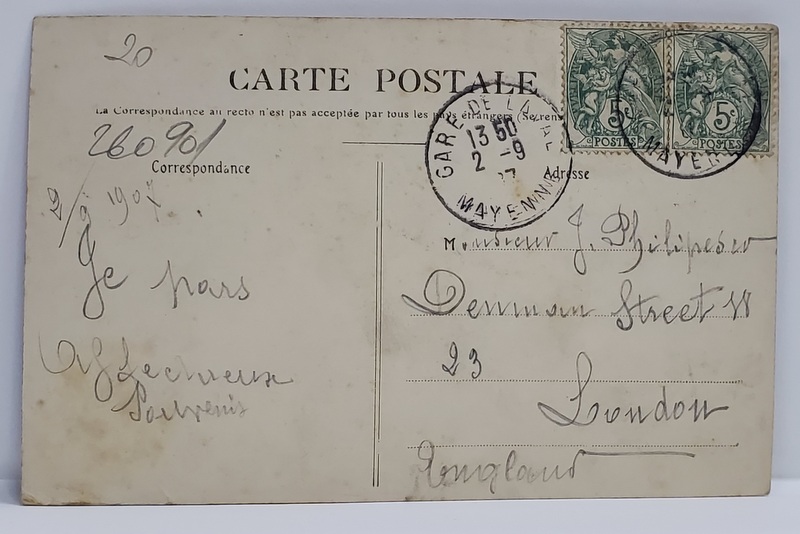 20
CARTE POSTALE
La Correspondance au recto n'est pas acceptée par tous les pays étrangers (Se rens
260901
Correspondance
Adresse
5c
POSTES
5c
POSTES
GARE DE LA
13 50
2 -9
MAYENNE
MAYENNE
2/9 1907
Je pars
Affectueux
Souvenirs
Monsieur J. Philipesco
Denman Street W
23
London
England